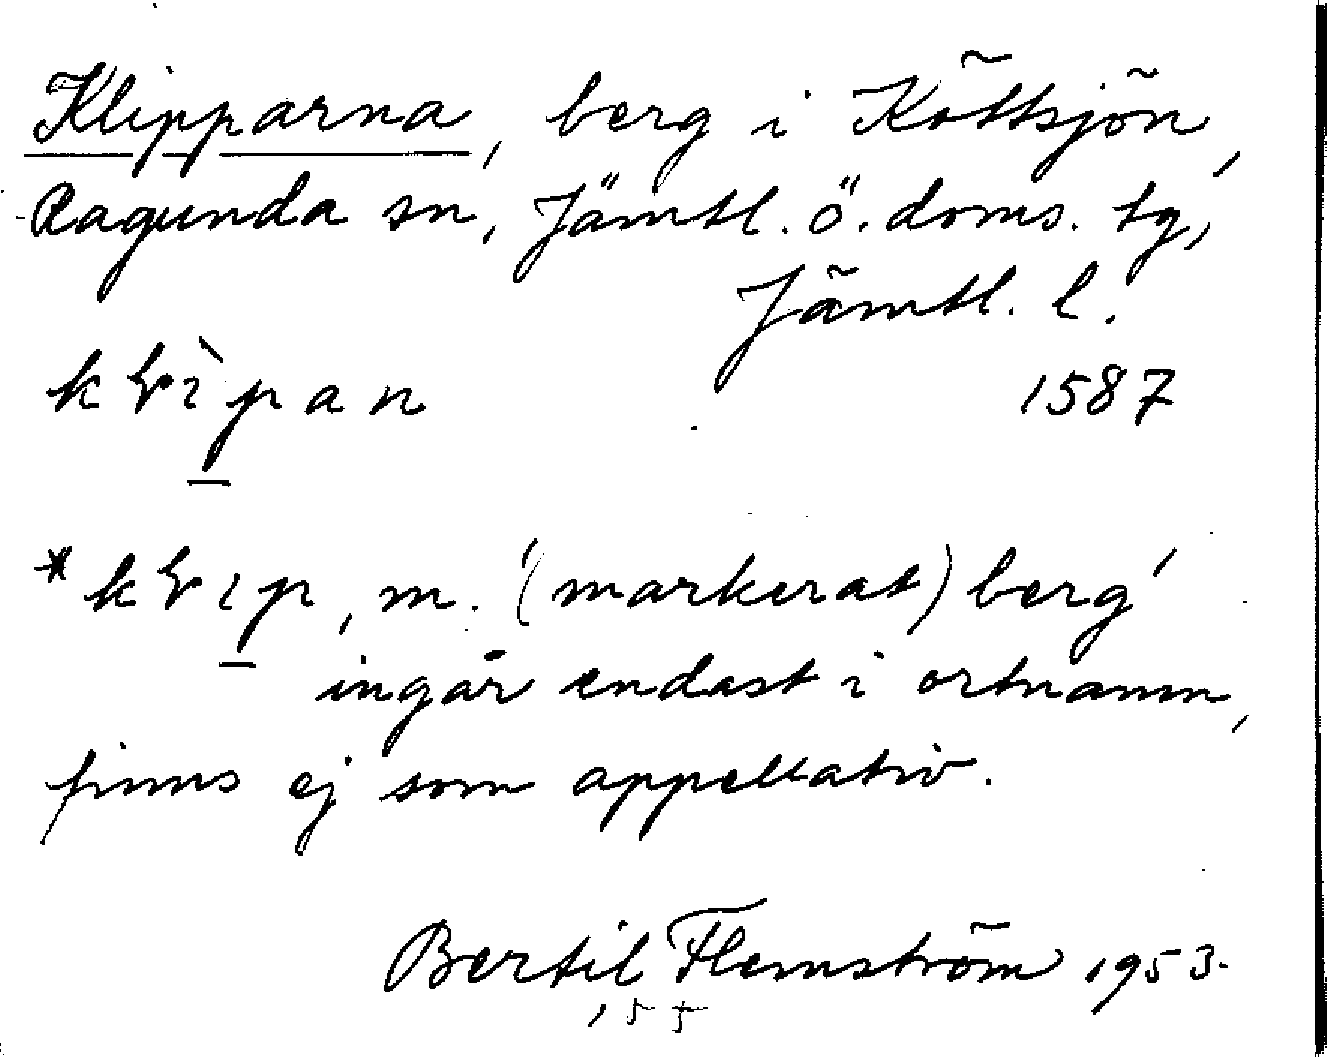 Klipparna, berg i Köttsjön,
Ragunda sn, Jämtl. ö. doms. tg,
Jämtl. l.
1587
m. '(markerat) berg'
ingår endast i ortnamn,
finns ej som appellativ.
Bertil Flemström 1953.